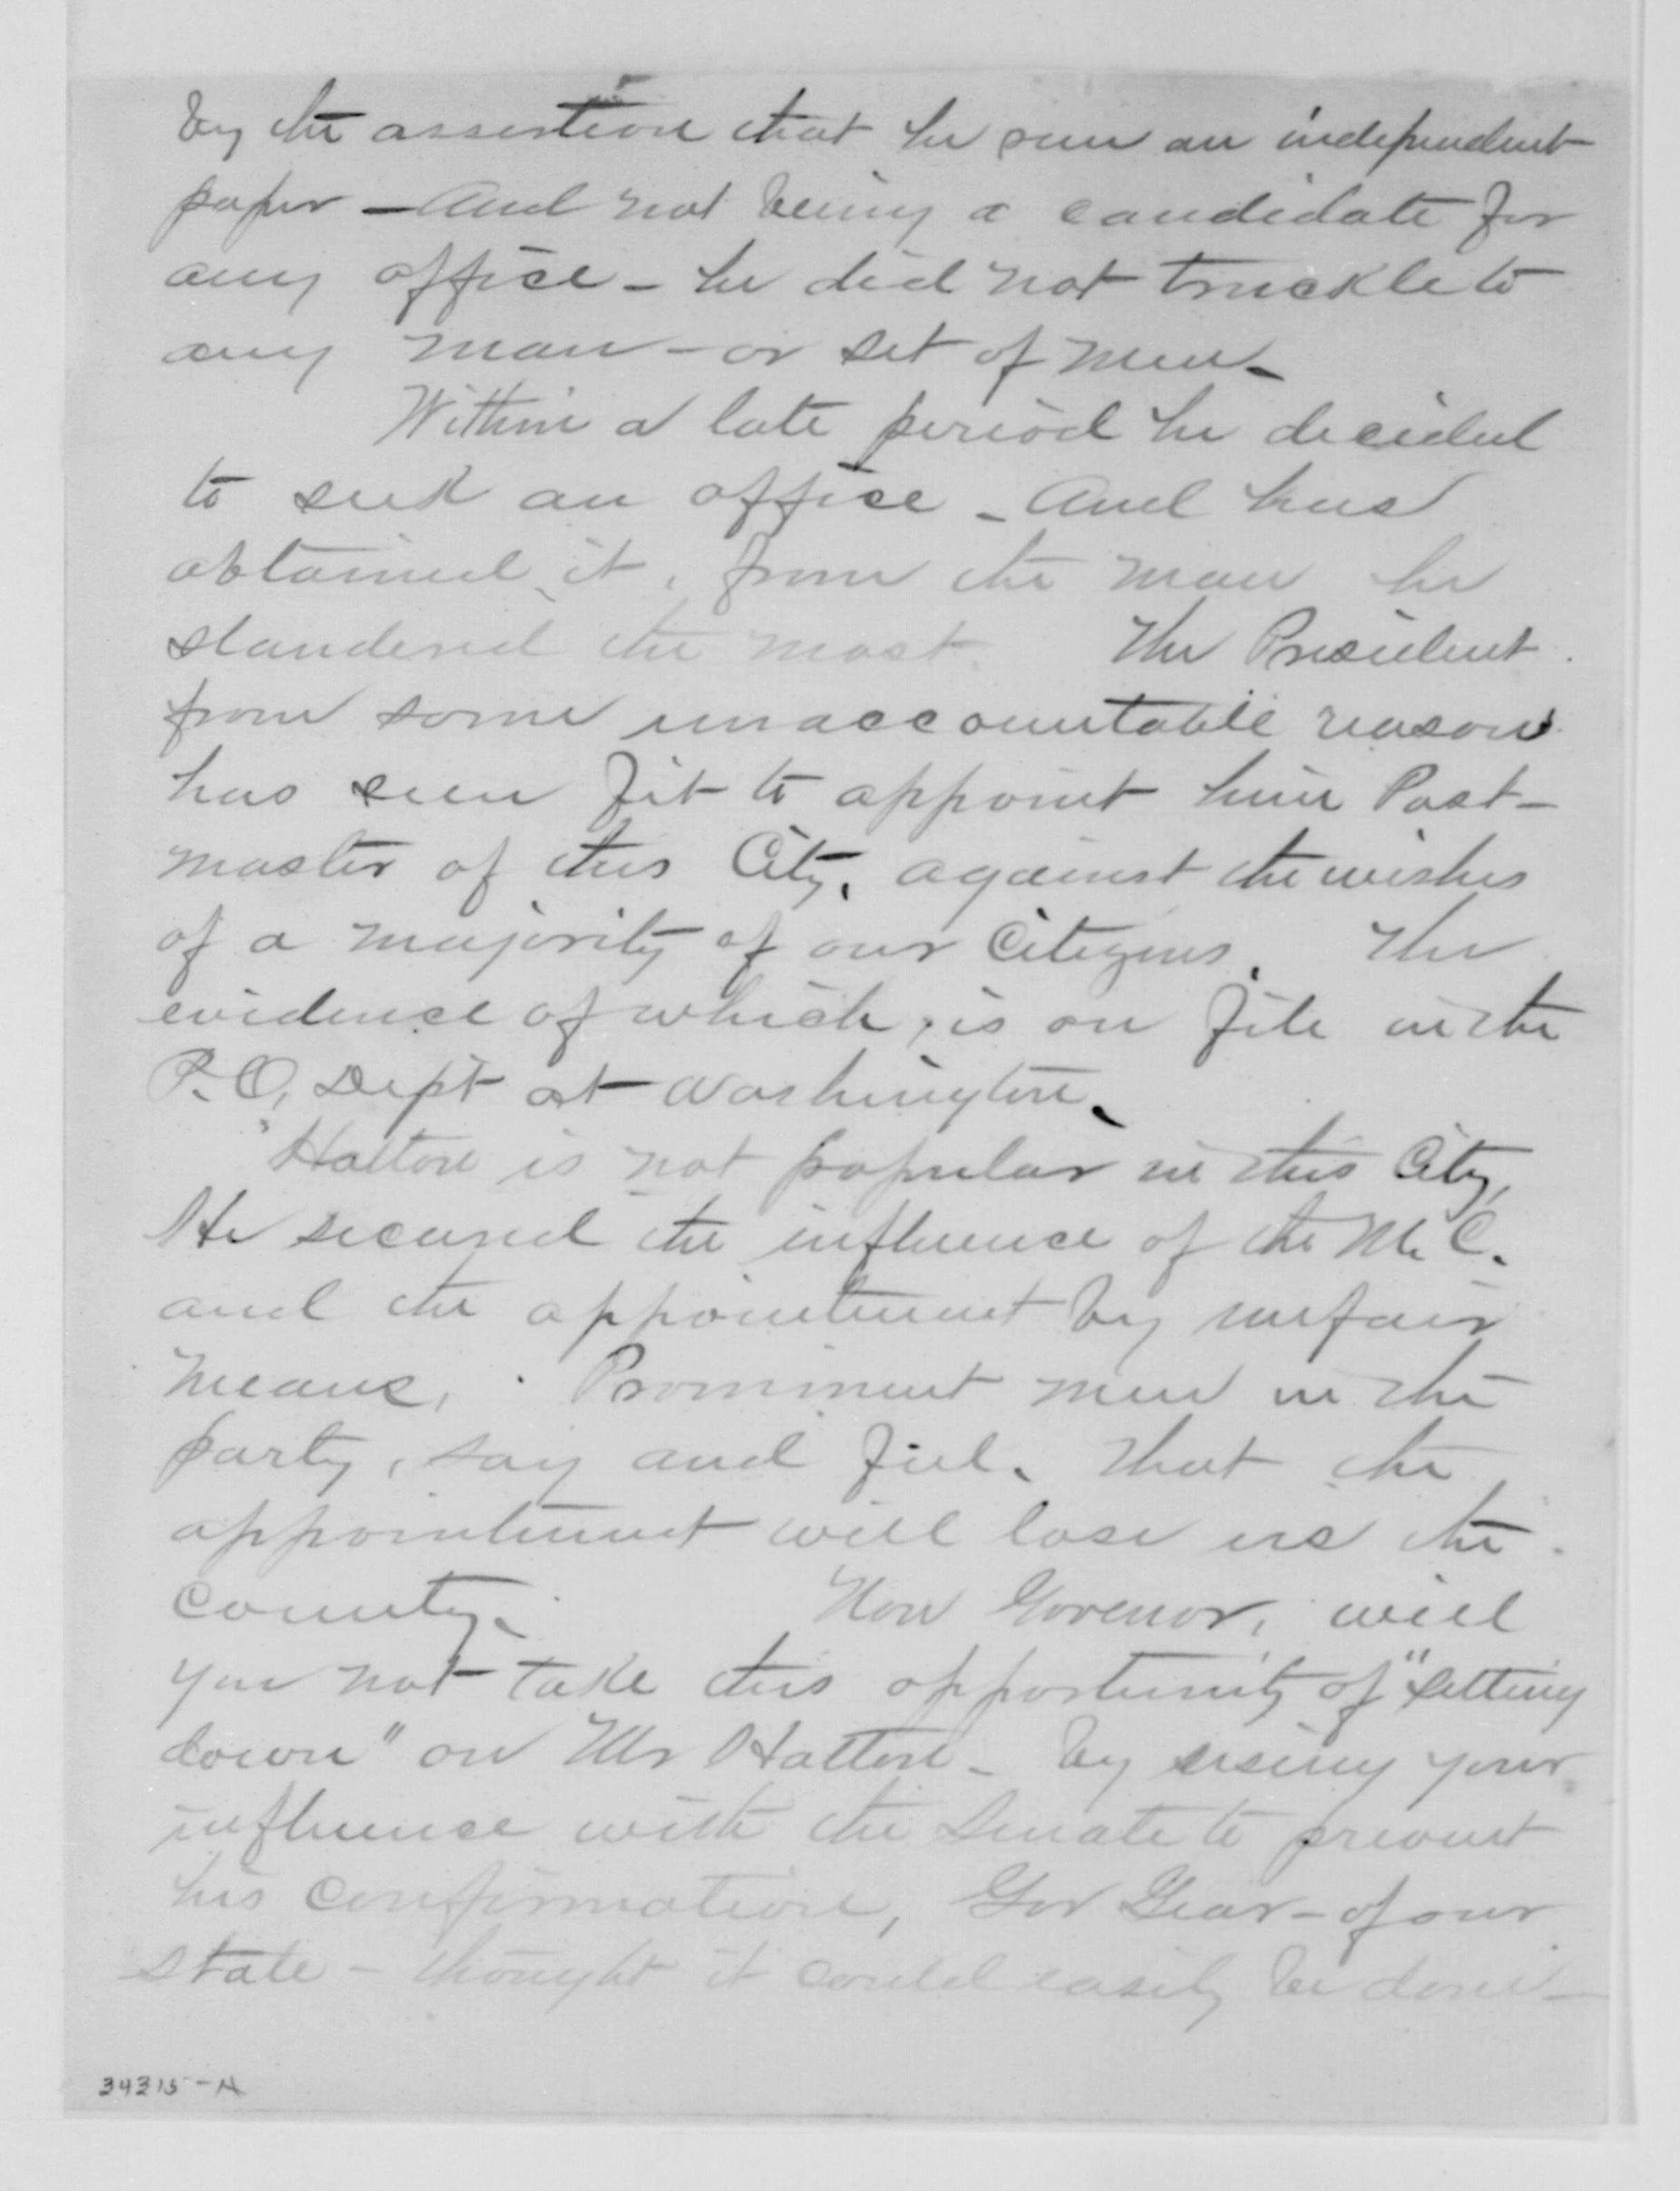 by the assertion that he run an independent
paper – And not being a candidate for
any office – he did not truckle to
any man – or set of men –
Within a late period he decided
to seek an office – And has
obtained it, from the man he
slandered the most. The President
from some unaccountable reason
has seen fit to appoint him Post-
master of this City, against the wishes
of a majority of our Citizens. The
evidence of which, is on file in the
P.O. Dept at Washington.
Hatton is not popular in this City,
He secured the influence of the M.C.
and the appointment by unfair
means. Prominent men in the
party, say and feel, that the
appointment will lose us the
County. Now Govenor, will
you not take this opportunity of "setting
down" on Mr Hatton – by using your
influence with the Senate to prevent
his confirmation, Gov Gear – of our
state – thought it could easily be done –
34315-A